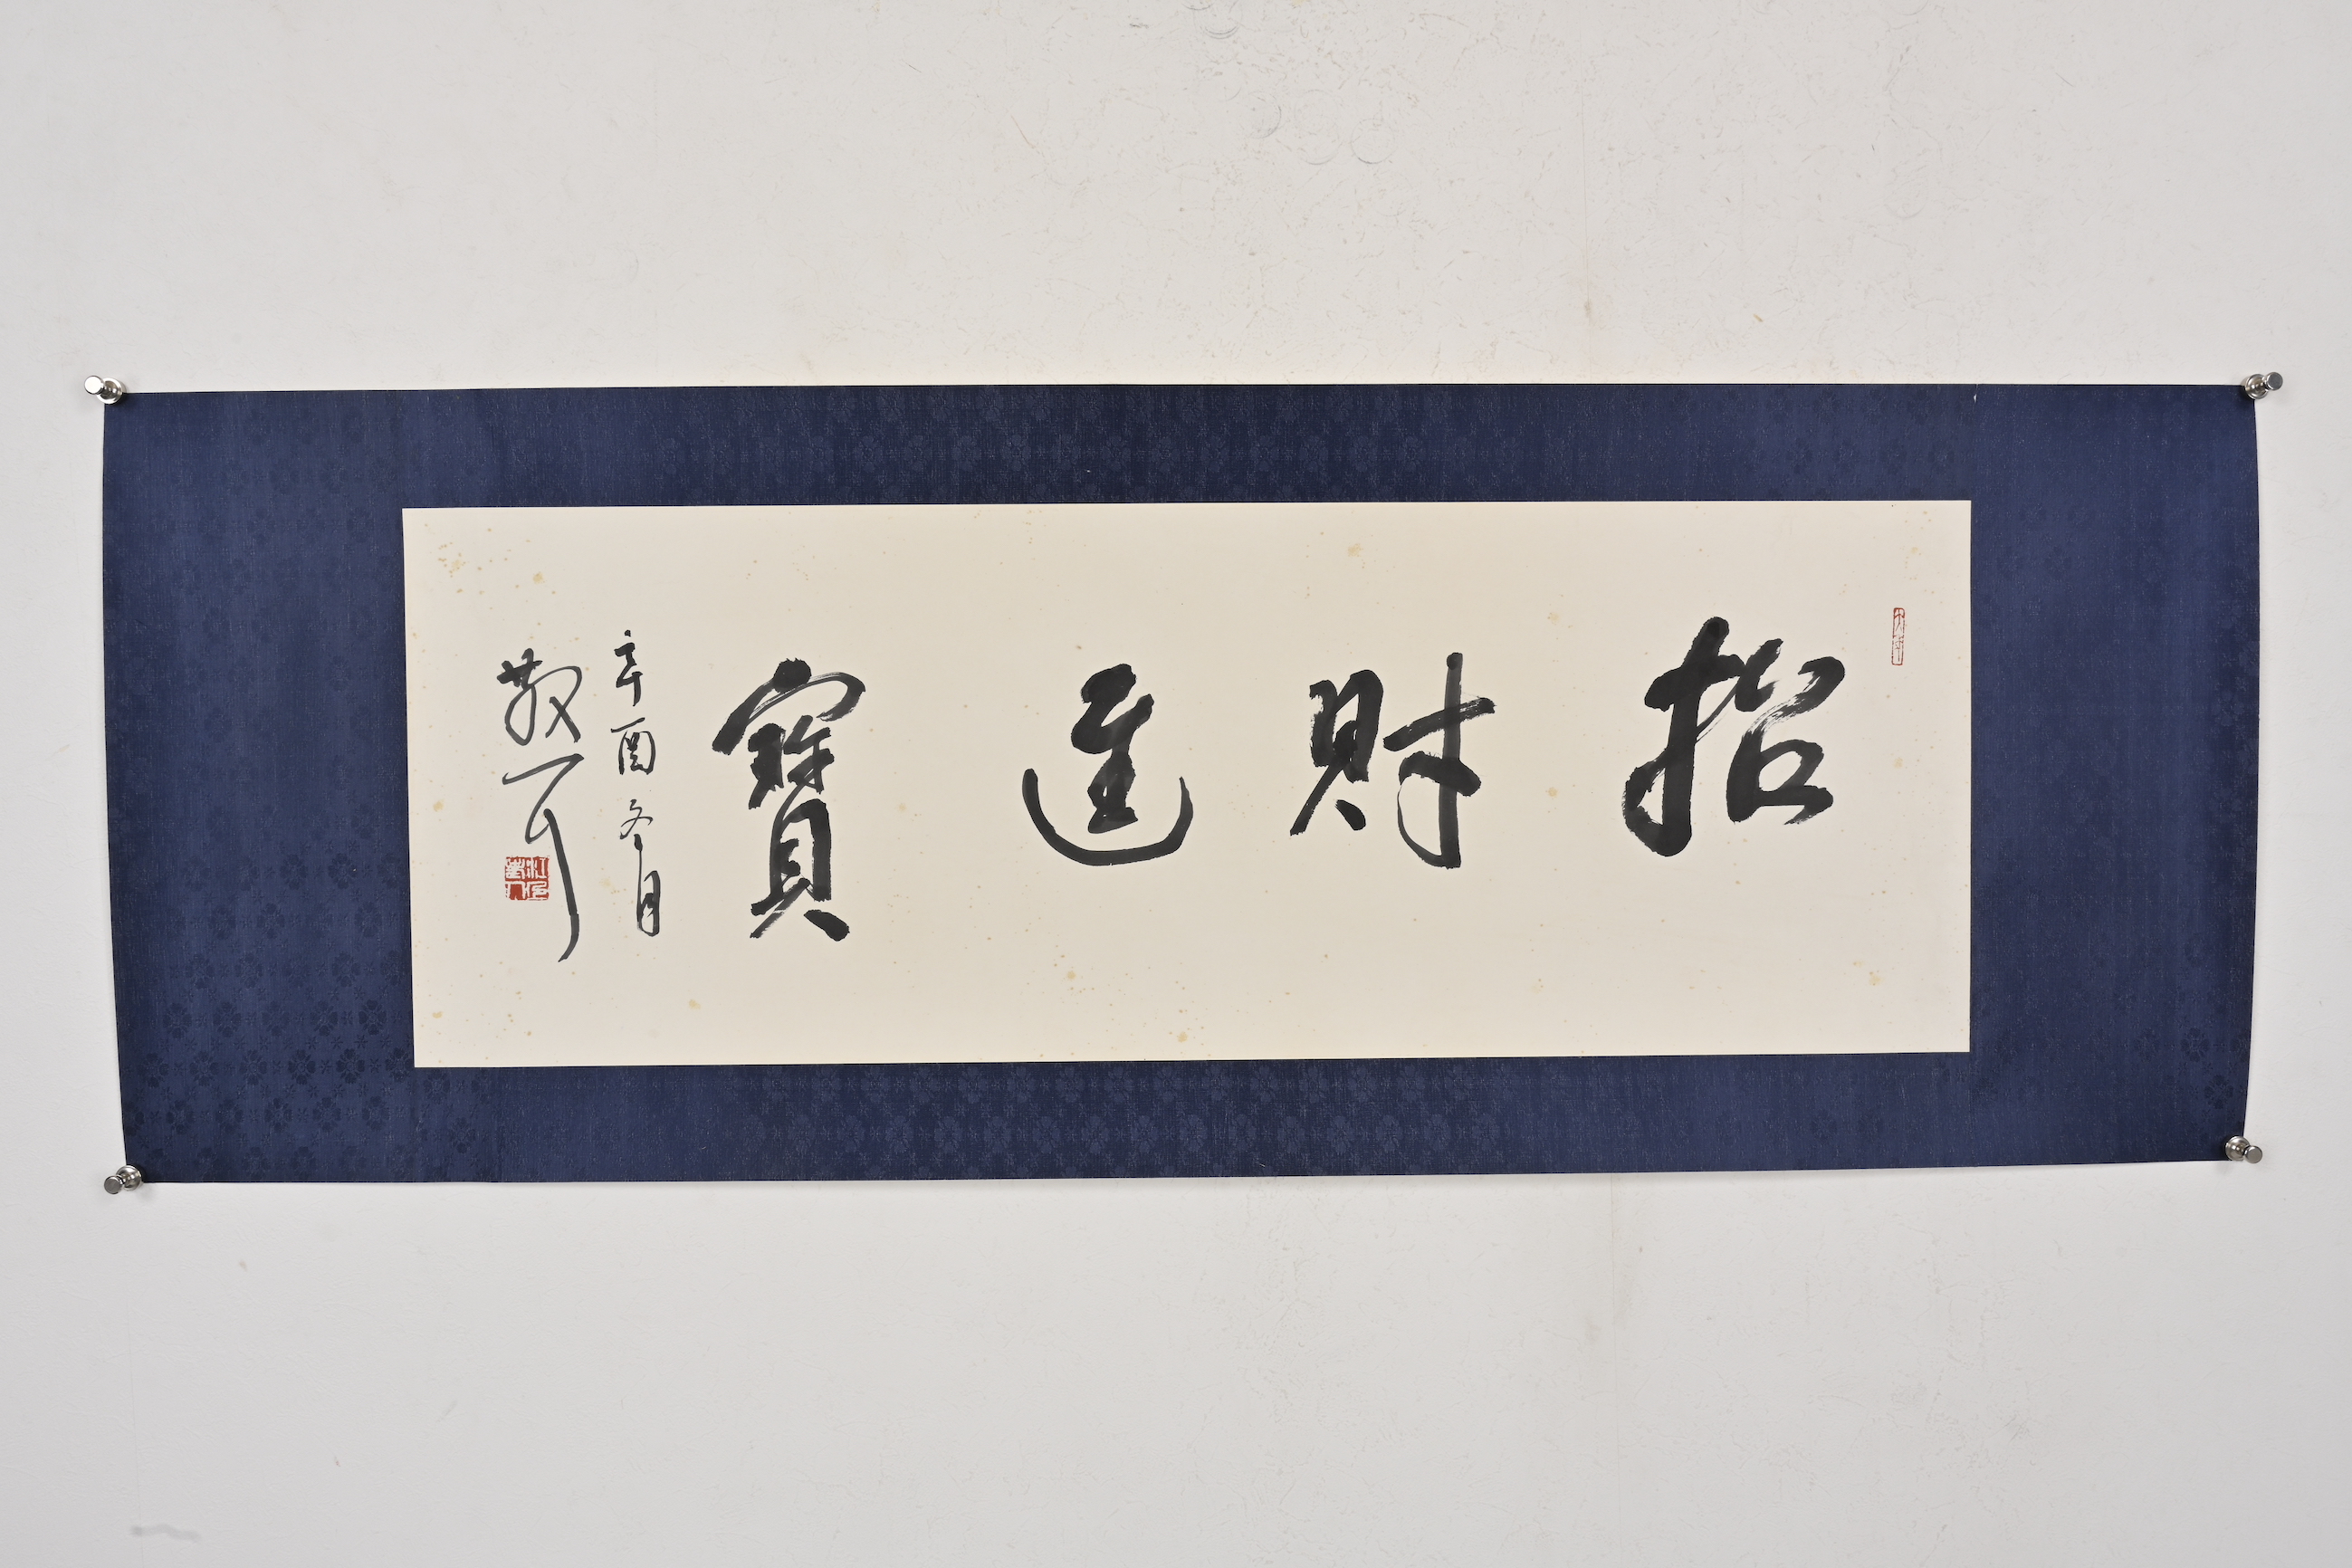 招財進寶
辛酉冬月